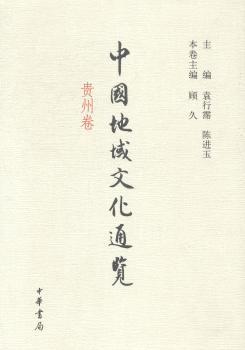 主　编　袁行霈　陈进玉
本卷主编　顾　久
中國地域文化通覽
贵州卷
中華書局